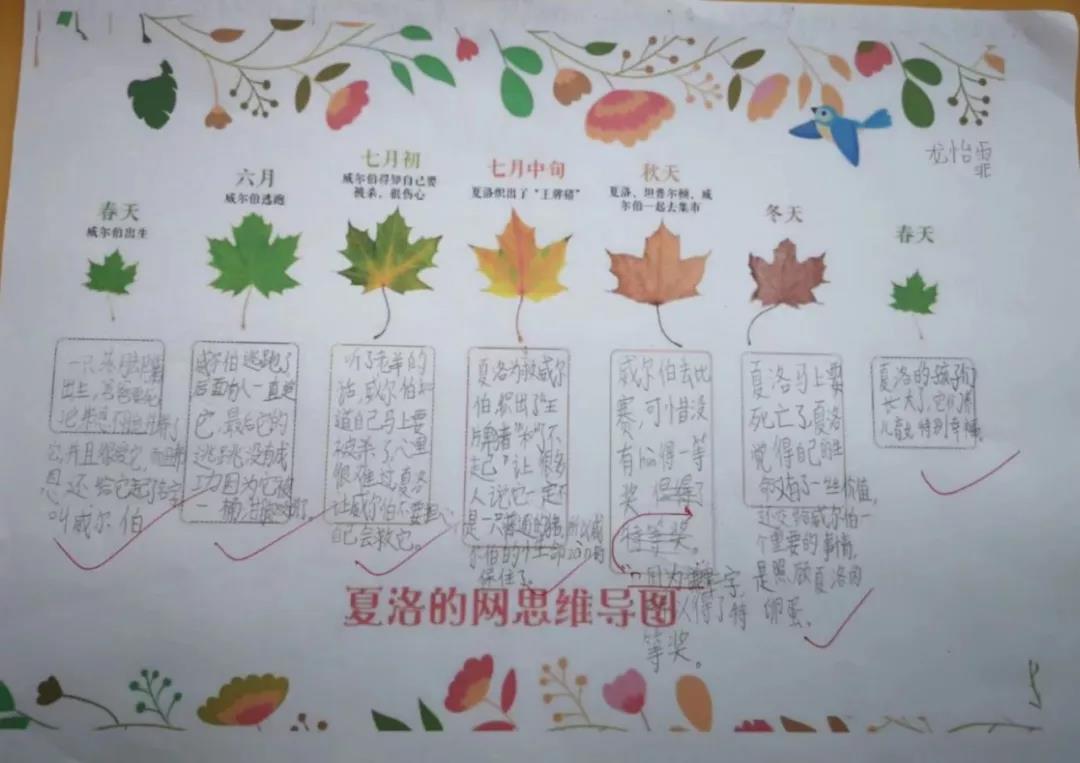 尤怡霏
春天
威尔伯出生
六月
威尔伯逃跑
七月初
威尔伯得知自己要
被杀,很伤心
七月中旬
夏洛织出了“王牌猪”
秋天
夏洛、坦普尔顿、威
尔伯一起去集市
冬天
春天
一只
出生,
它,并且很爱它,而且
恩还给它起了名字
叫威尔伯
威尔伯逃跑了
后面的人一直追
它,最后它的
逃跑没有成
功因为它被
一桶
听了老羊的
话,威尔伯知
道自己马上要
被杀了,心里
很难过,夏洛
让威尔伯不要担心
自己会救它。
夏洛为救威尔
伯,织出了“王
牌猪”和“了不
起”让很多
人说它一定不
是一只普通的猪,所以威
尔伯的小生命
保住了。
威尔伯去比
赛,可惜没
有得一等
奖,但得了
特等奖。
因为
得了特
等奖。
夏洛马上要
死亡了,夏洛
觉得自己的生
命有了一些价值,
还交给威尔伯一
个重要的事情,
是照顾夏洛的
卵蛋。
夏洛的孩子们
长大了,它们
特别幸福。
夏洛的网思维导图